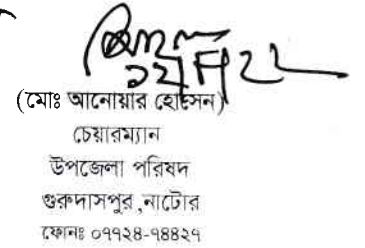 (মোঃ আনোয়ার হোসেন)
চেয়ারম্যান
উপজেলা পরিষদ
গুরুদাসপুর,নাটোর
ফোনঃ ০৭৭২৪-৭৪৪২৭